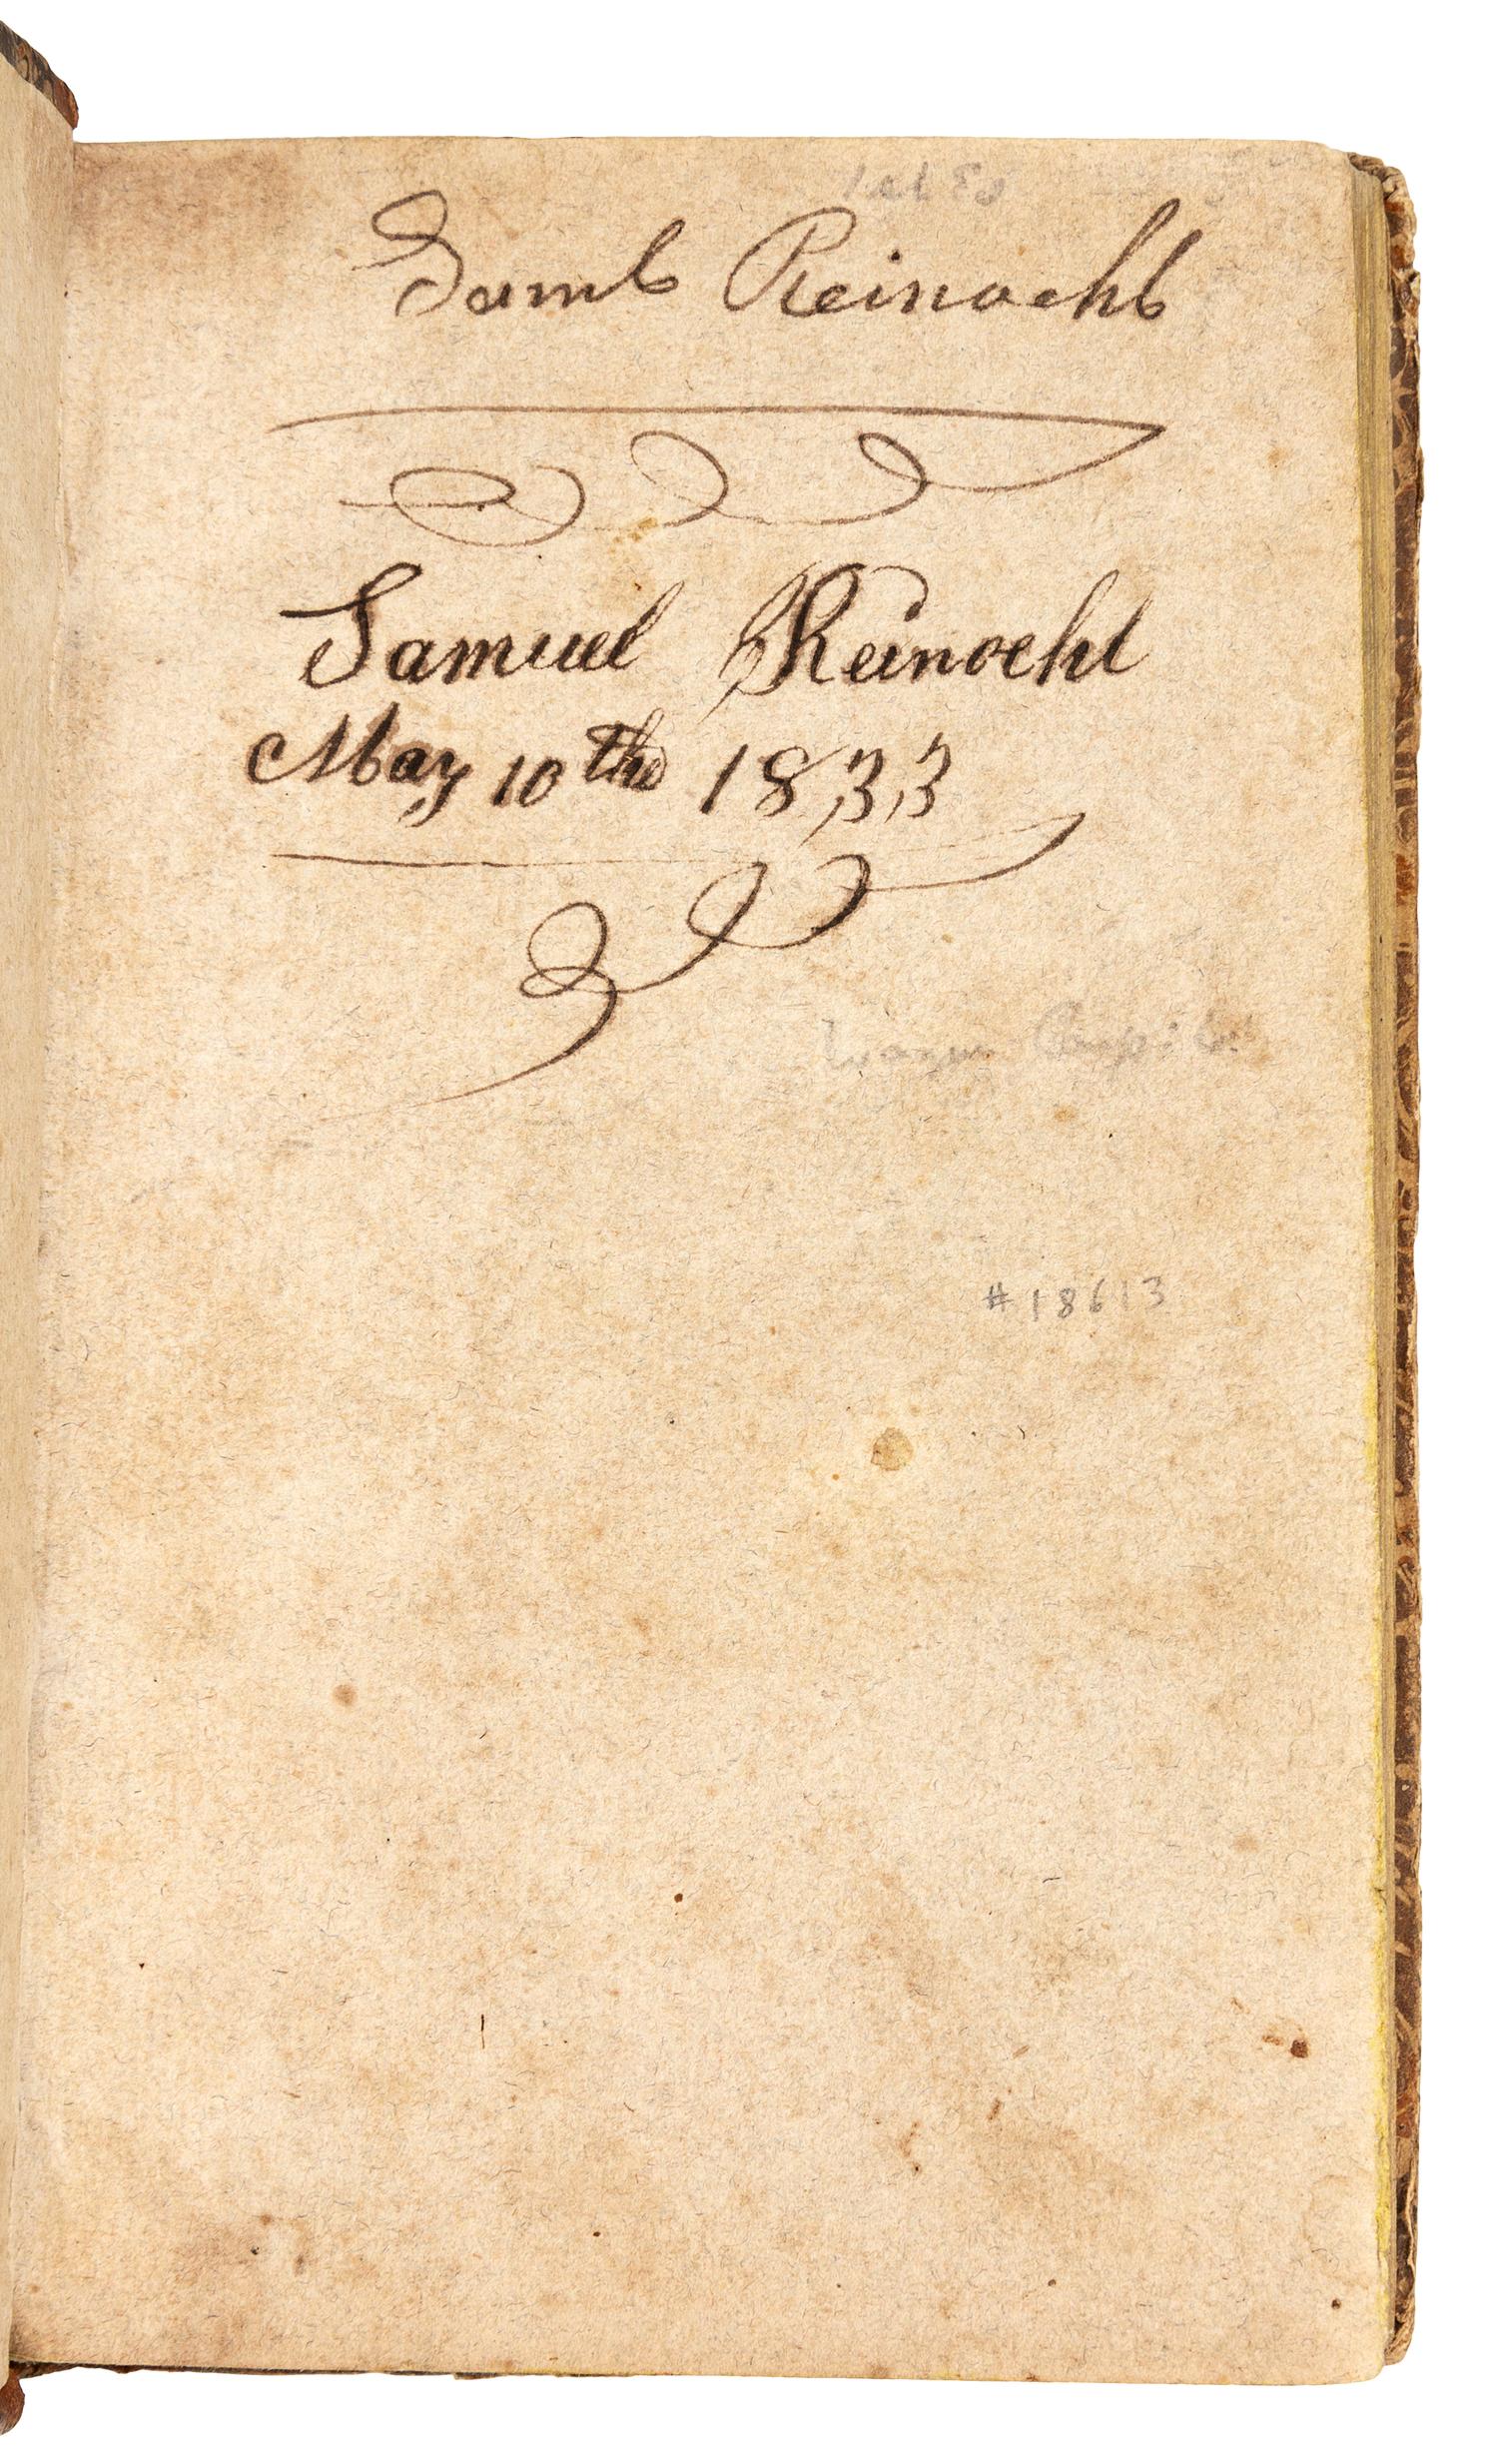 Saml Reinoehl
Samuel Reinoehl
May 10th 1833
#18613